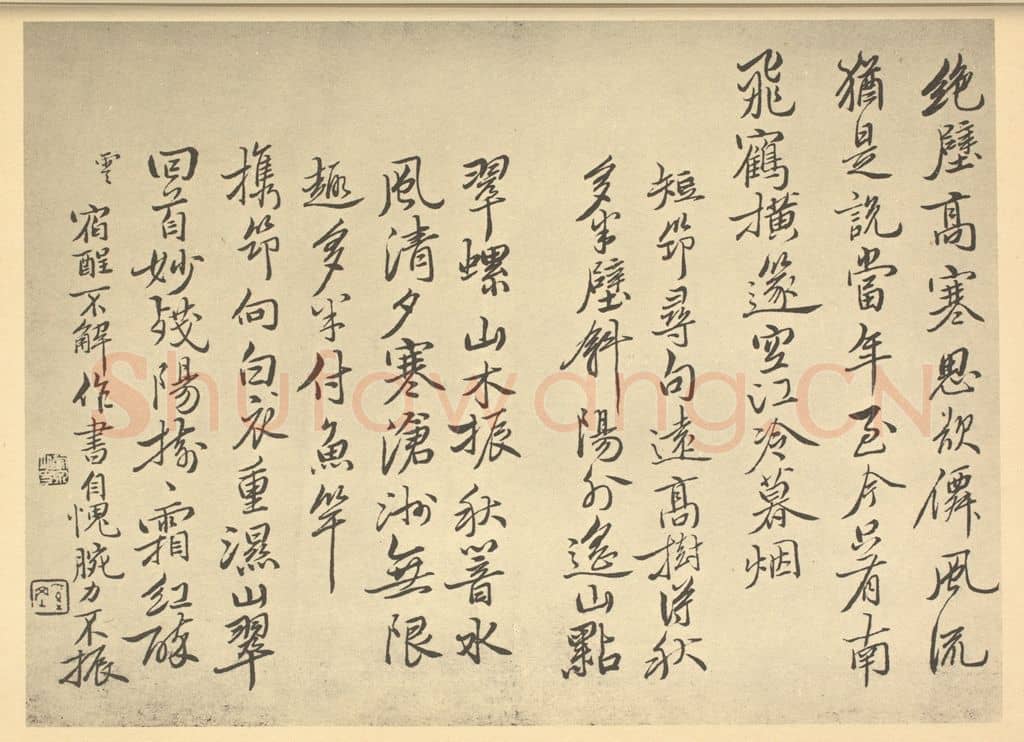 絶壁高寒思欲僊風流
猶是說當年至今只有南
飛鶴橫篴空江冷暮烟
短笻尋句遠高樹得秋
多半壁斜陽外遙山點
翠螺山木振秋簹水
風清夕寒滄洲無限
趣多半付魚竿
攜笻向白衣重濕山翠
回首妙殘陽揄〻霜紅
宿酲不解作書自愧腕力不振
Shufawang.CN